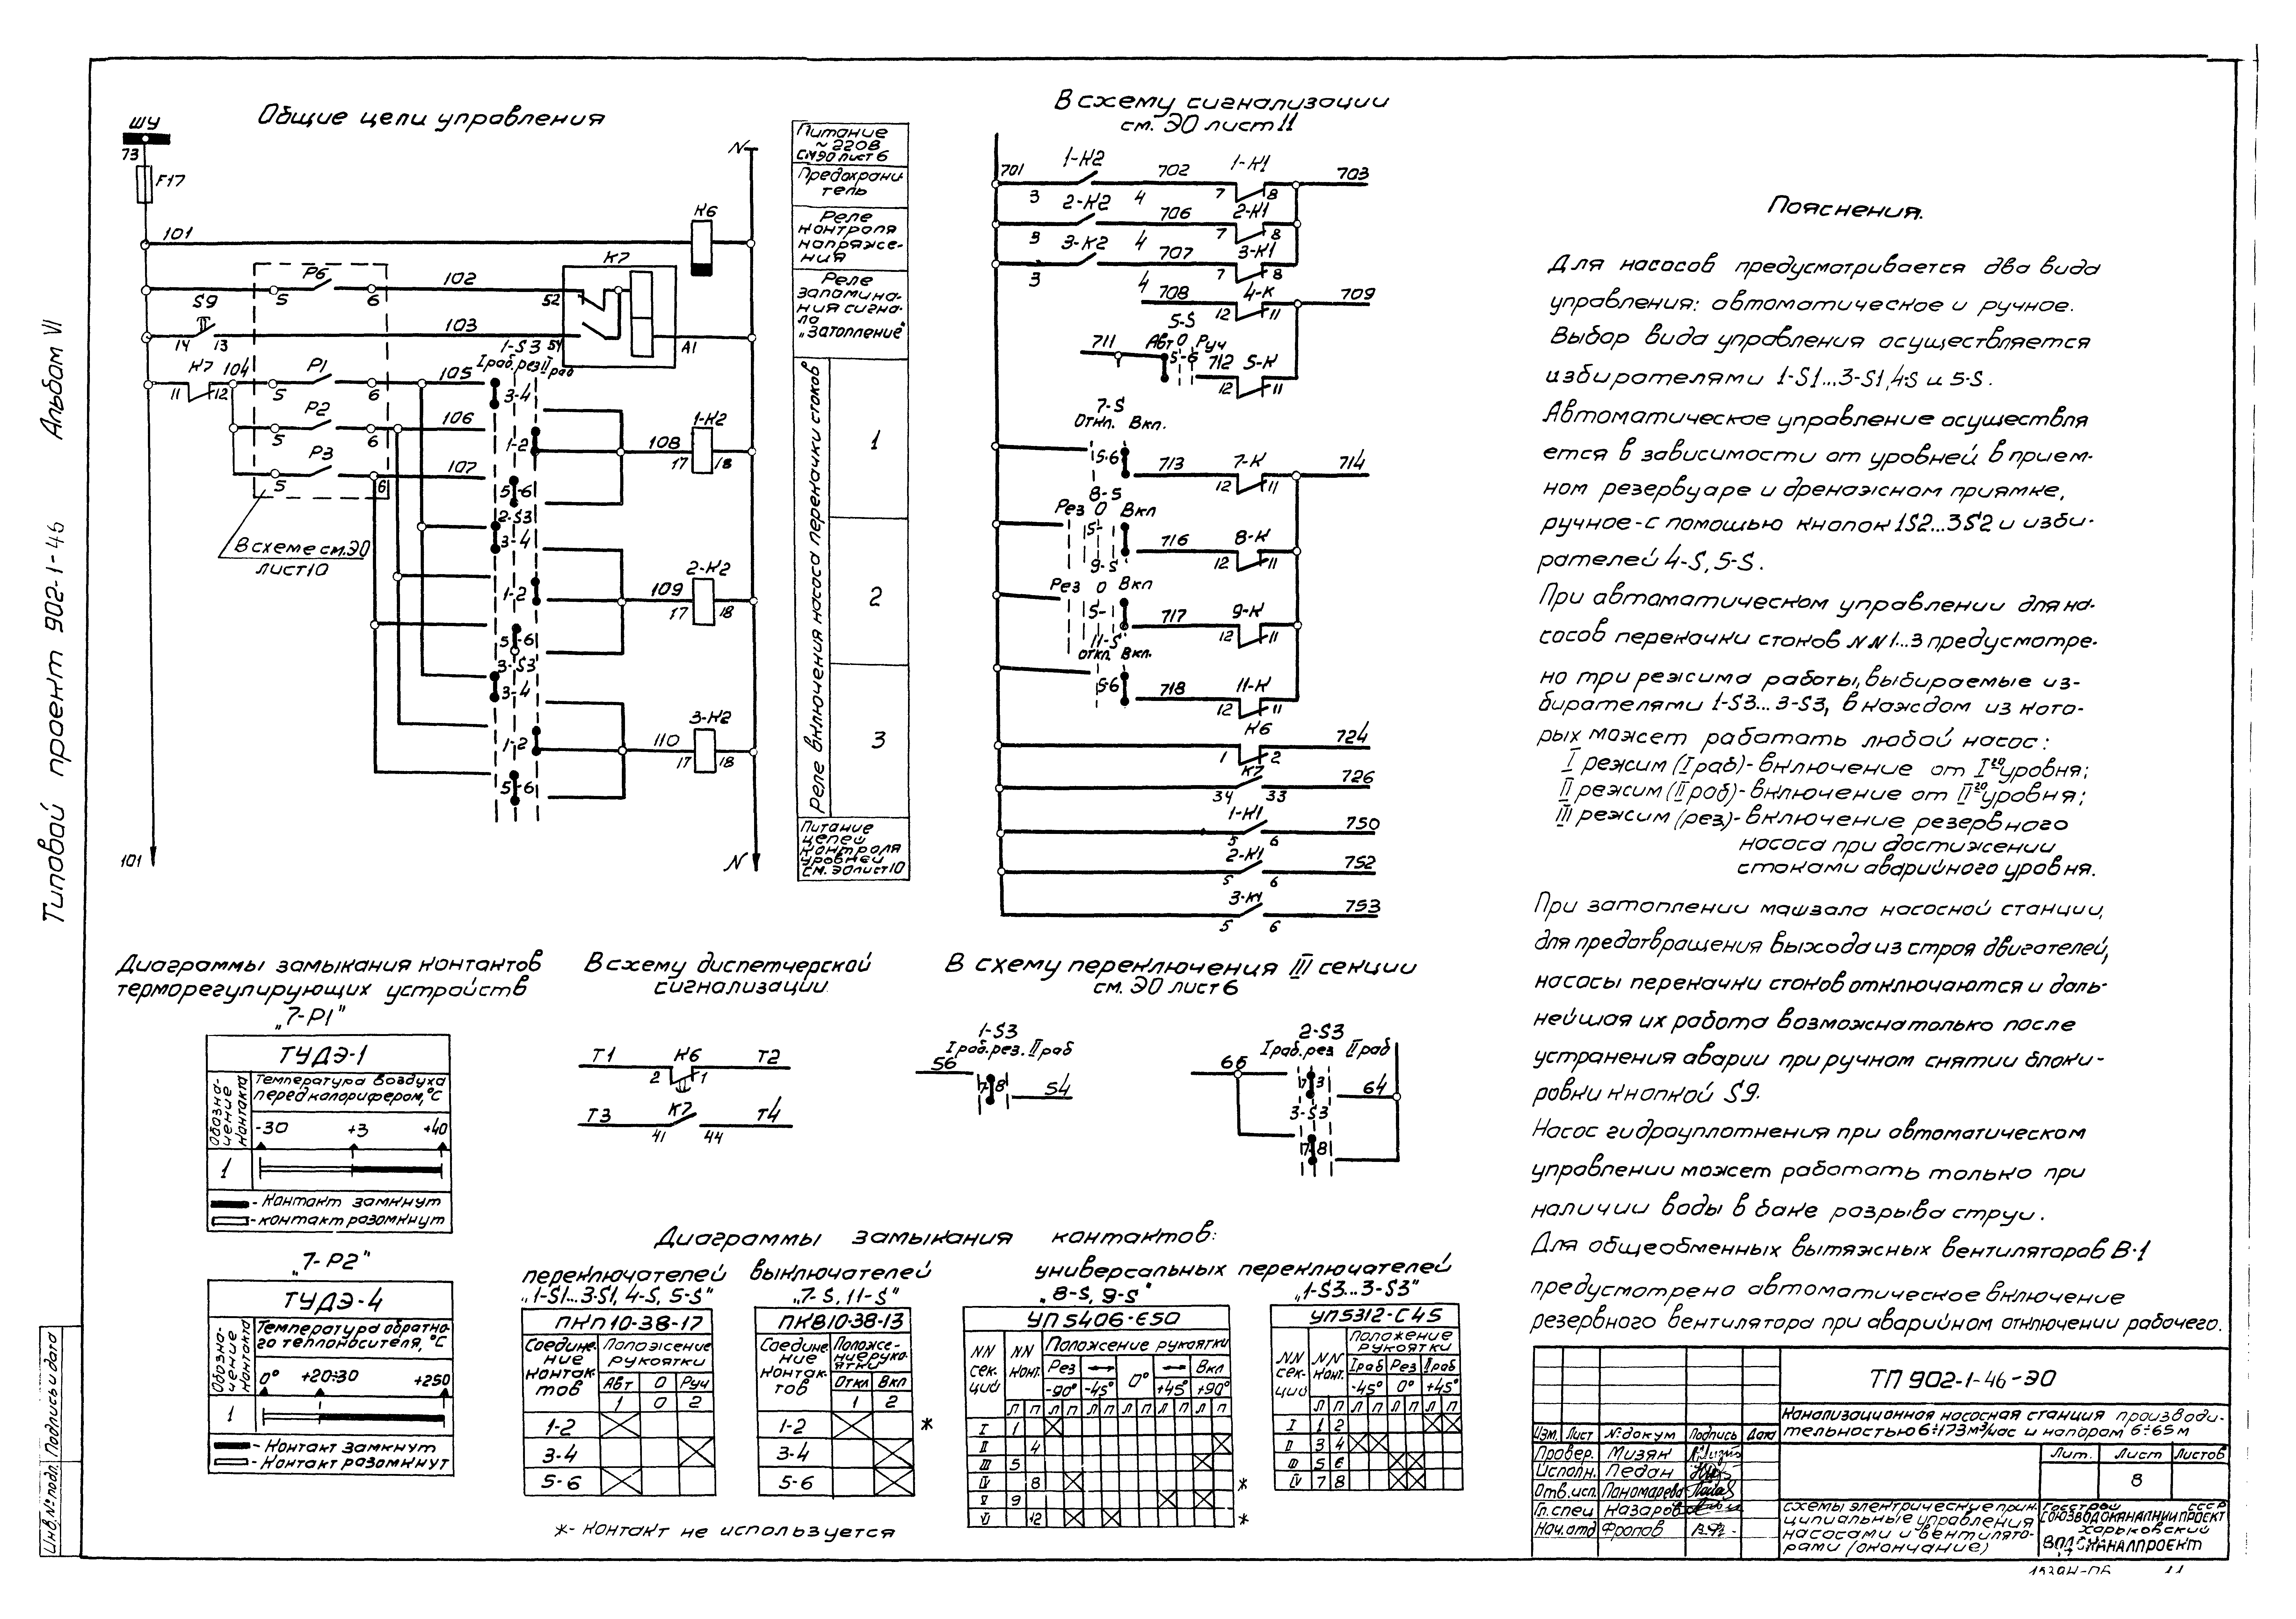 Типовой проект 902-1-46 Альбом VI
Общие цепи управления
ШУ
73
F17
N
К6
101
Р6
5
6
102
52
К7
S9
14
13
103
51
А1
1-S3
Iраб. рез. IIраб
К7
11
12
104
Р1
5
6
105
3-4
Р2
5
6
106
1-2
108
1-К2
17
18
Р3
5
6
107
5-6
2-S3
3-4
В схеме см. ЭО
лист 10
1-2
109
2-К2
17
18
5-6
3-S3
3-4
1-2
110
3-К2
17
18
5-6
101
N
Питание
~220В
см ЭО лист 6
Предохрани-
тель
Реле
контроля
напряже-
ния
Реле
запомина-
ния сигна-
ла
„Затопление"
Реле включения насоса перекачки стоков
1
2
3
Питание
цепей
контроля
уровней
см. ЭО лист 10
В схему сигнализации
см. ЭО лист 11
701
1-К2
702
1-К1
703
3
4
7
8
2-К2
706
2-К1
3
4
7
8
3-К2
707
3-К1
3
4
7
8
708
4-К
709
12
11
5-S
Авт 0 Руч
711
5-6
712
5-К
12
11
7-S
Откл. Вкл.
5-6
713
7-К
714
12
11
8-S
Рез 0 Вкл
5-
716
8-К
12
11
9-S
Рез 0 Вкл
5-
717
9-К
12
11
11-S
Откл. Вкл.
5-6
718
11-К
12
11
К6
724
1
2
К7
726
34
33
1-К1
750
5
6
2-К1
752
5
6
3-К1
753
5
6
Пояснения.
Для насосов предусматривается два вида
управления: автоматическое и ручное.
Выбор вида управления осуществляется
избирателями 1-S1...3-S1, 4-S и 5-S.
Автоматическое управление осуществля
ется в зависимости от уровней в прием-
ном резервуаре и дренажном приямке,
ручное-с помощью кнопок 1S2...3S2 и изби-
рателей 4-S, 5-S.
При автоматическом управлении для на-
сосов перекачки стоков NN1...3 предусмотре-
но три режима работы, выбираемые из-
бирателями 1-S3...3-S3, в каждом из кото-
рых может работать любой насос:
I режим (Iраб)-включение от I го уровня;
II режим (IIраб)-включение от II го уровня;
III режим (рез)-включение резервного
насоса при достижении
стоками аварийного уровня.
При затоплении машзала насосной станции,
для предотвращения выхода из строя двигателей,
насосы перекачки стоков отключаются и даль-
нейшая их работа возможна только после
устранения аварии при ручном снятии блоки-
ровки кнопкой S9.
Насос гидроуплотнения при автоматическом
управлении может работать только при
наличии воды в баке разрыва струи.
Для общеобменных вытяжных вентиляторов В-1
предусмотрено автоматическое включение
резервного вентилятора при аварийном отключении рабочего.
Диаграммы замыкания контактов
терморегулирующих устройств
„7-Р1"
ТУДЭ-1
Обозна-
чение
контакта
Температура воздуха
перед калорифером, °С
-30 +3 +40
1
- Контакт замкнут
- контакт разомкнут
„7-Р2"
ТУДЭ-4
Обозна-
чение
контакта
Температура обратно-
го теплоносителя, °С
0° +20÷30 +250
1
- Контакт замкнут
- Контакт разомкнут
В схему диспетчерской
сигнализации
Т1
К6
Т2
2
1
Т3
К7
Т4
41
44
В схему переключения III секции
см. ЭО лист 6
1-S3
Iраб. рез. IIраб
56
7-8
54
2-S3
Iраб. рез IIраб
66
64
3-S3
7-8
Диаграммы замыкания контактов:
переключателей
„1-S1...3-S1, 4-S, 5-S"
ПКП10-38-17
Соедине-
ние
контак-
тов
Положение
рукоятки
Авт 0 Руч
1 0 2
1-2
3-4
5-6
выключателей
„7-S, 11-S"
ПКВ10-38-13
Соедине
ние
контак-
тов
Положе-
ние руко-
ятки
Откл Вкл
1 2
1-2 *
3-4
5-6
*- контакт не используется
универсальных переключателей
„8-S, 9-S"
УП5406-Е50
NN
сек-
ций
NN
конт.
Положение рукоятки
Рез Вкл
-90° -45° 0° +45° +90°
Л П Л П Л П Л П Л П Л П
I 1
II 4
III 5
IV 8 *
V 9
VI 12 *
„1-S3...3-S3"
УП5312-С45
NN
сек-
ций
NN
конт.
Положение
рукоятки
Iраб Рез IIраб
-45° 0° +45°
Л П Л П Л П Л П
I 1 2
II 3 4
III 5 6
IV 7 8
ТП 902-1-46-ЭО
Канализационная насосная станция производи-
тельностью 6÷173м³/час и напором 6÷65м
Изм. Лист N°докум Подпись Дата
Провер. Мизяк
Исполн. Педан
Отв.исп. Пономарева
Гл.спец Казаров
Нач.отд Фролов
Лит. Лист Листов
8
Схемы электрические прин-
ципиальные управления
насосами и вентилято-
рами (окончание)
Госстрой СССР
СОЮЗВОДОКАНАЛНИИПРОЕКТ
Харьковский
ВОДОКАНАЛПРОЕКТ
Инв.N°подл. Подпись и дата
11